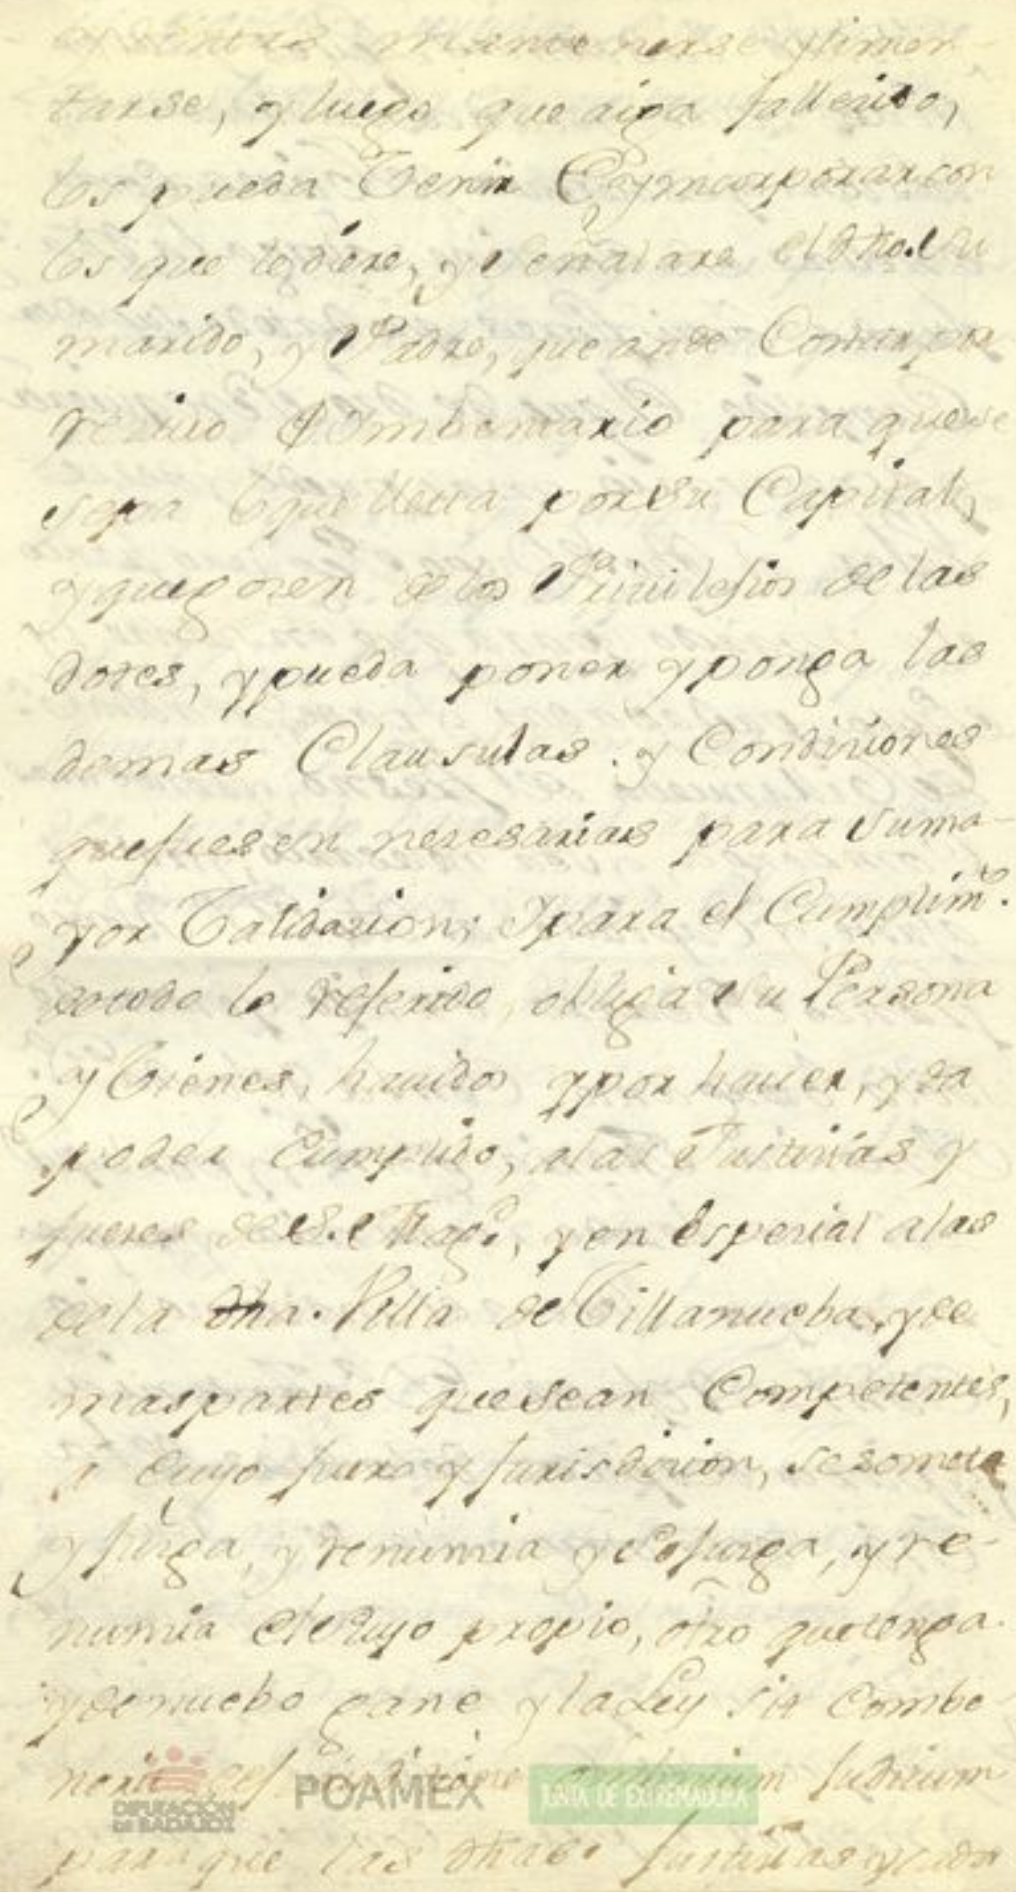 mantenerse y limen-
tarse, y luego que aiga fallecido,
los pueda Venir e yncorporar con
los que le diere, y señalare el dho. su
marido, y Padre, que ande Constar por
reciuo Ymbentario para que se
sepa lo que lleua por su Capital,
y que gozen de los Priuilesios de las
dotes, y pueda poner y ponga las
demas Clausulas. y Condiciones
que fuesen necesarias para su ma-
yor Validazion; Y para el Cumplimto.
de todo lo referido, obliga su Persona
y Vienes, hauidos y por hauer, y da
poder Cumplido, a las Justicias y
Jueces de S. Magd., y en Especial a las
de la dha. Villa de Villanueba, y de
mas partes que sean Competentes,
a Cuyo fuero y Jurisdicion, se somete
y juzga, y renuncia y de
nuncia el suyo propio, otro que tenga
y de nuebo gane y la Ley sit Combe
nerit de Judicum
para que las dhas. Justicias
DIPUTACIÓN
DE BADAJOZ
POAMEX
JUNTA DE EXTREMADURA